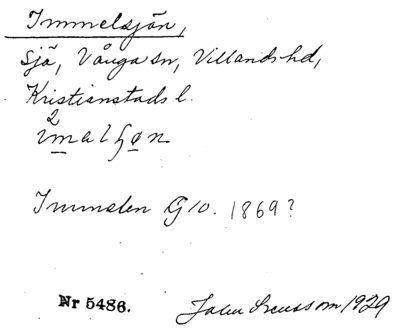 Immelsjön,
Sjö, Vånga sn, Villands hd,
Kristianstads l.
2
imalʃøn
Immelen G 10. 1869?
Nr 5486.
John Svensson 1929